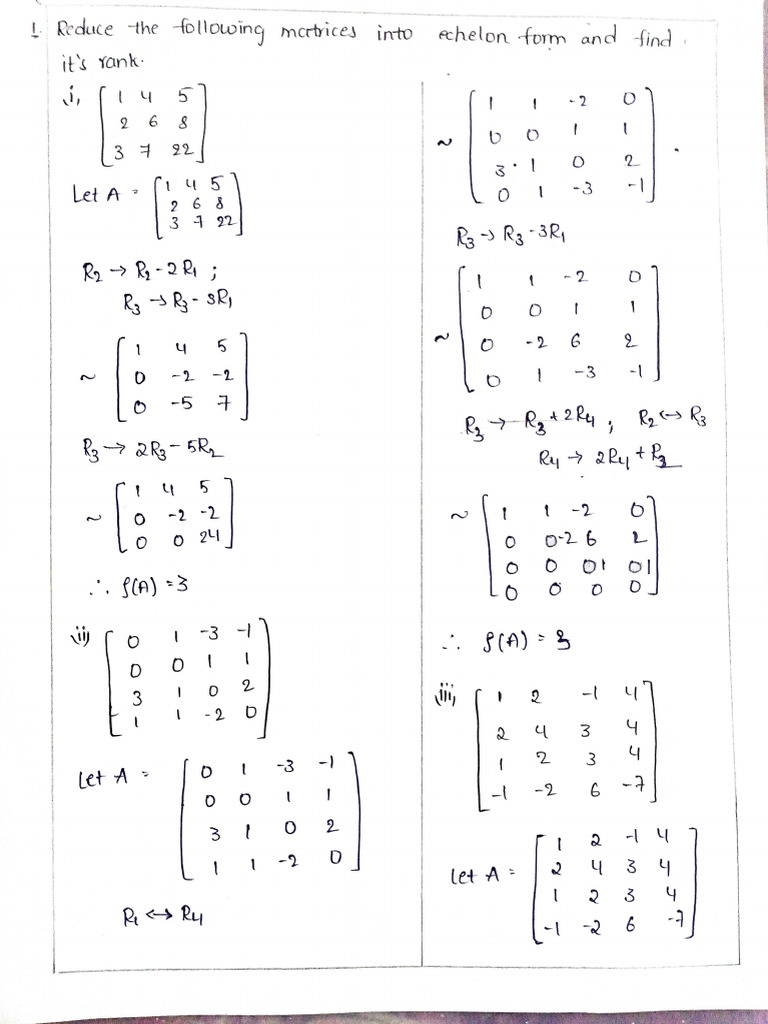 1. Reduce the following matrices into echelon form and find
it's rank.
i, [1 4 5
2 6 8
3 7 22]
Let A = [1 4 5
2 6 8
3 7 22]
R2 → R2 - 2R1 ;
R3 → R3 - 3R1
~ [1 4 5
0 -2 -2
0 -5 7]
R3 → 2R3 - 5R2
~ [1 4 5
0 -2 -2
0 0 24]
∴ ρ(A) = 3
ii) [0 1 -3 -1
0 0 1 1
3 1 0 2
1 1 -2 0]
Let A = [0 1 -3 -1
0 0 1 1
3 1 0 2
1 1 -2 0]
R1 ↔ R4
~ [1 1 -2 0
0 0 1 1
3 1 0 2
0 1 -3 -1]
R3 → R3 - 3R1
~ [1 1 -2 0
0 0 1 1
0 -2 6 2
0 1 -3 -1]
R3 → R3 + 2R4 ; R2 ↔ R3
R4 → 2R4 + R3
~ [1 1 -2 0
0 -2 6 2
0 0 1 1
0 0 0 0]
∴ ρ(A) = 3
iii, [1 2 -1 4
2 4 3 4
1 2 3 4
-1 -2 6 -7]
Let A = [1 2 -1 4
2 4 3 4
1 2 3 4
-1 -2 6 -7]